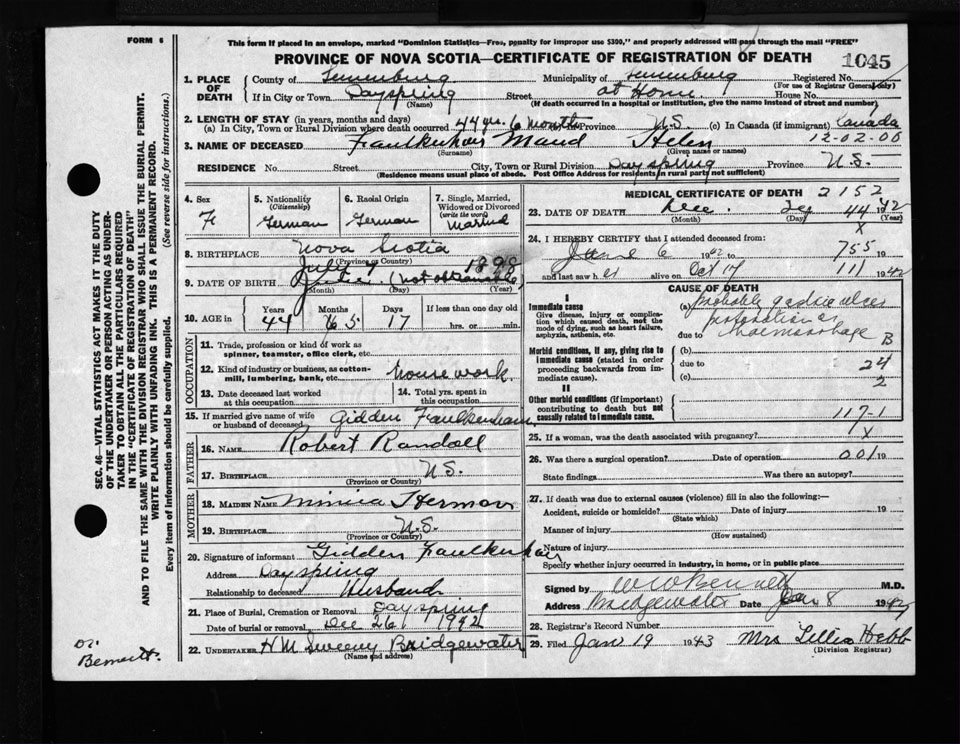 FORM 6
This form if placed in an envelope, marked "Dominion Statistics—Free, penalty for improper use $300," and properly addressed will pass through the mail "FREE"
PROVINCE OF NOVA SCOTIA—CERTIFICATE OF REGISTRATION OF DEATH
1045
1. PLACE OF DEATH
County of Lunenburg Municipality of Lunenburg Registered No.
(For use of Registrar General only)
If in City or Town Dayspring Street at Home. House No.
(Name) (If death occurred in a hospital or institution, give the name instead of street and number)
2. LENGTH OF STAY (in years, months and days)
(a) In City, Town or Rural Division where death occurred 44 yrs. 6 months Province N.S (c) In Canada (if immigrant) Canada
12-02-00
3. NAME OF DECEASED Faulkenham Maud Helen
(Surname) (Given name or names)
RESIDENCE No. Street City, Town or Rural Division Dayspring Province N.S.
(Residence means usual place of abode. Post Office Address for residents in rural parts not sufficient)
4. Sex F
5. Nationality (Citizenship) German
6. Racial Origin German
7. Single, Married, Widowed or Divorced (write the word) Married
8. BIRTHPLACE Nova Scotia
(Province or Country)
July 9 1898
9. DATE OF BIRTH
(Month) (Day) (Year)
10. AGE in Years Months Days If less than one day old
44 5 17 hrs. or min.
OCCUPATION
11. Trade, profession or kind of work as spinner, teamster, office clerk, etc.
12. Kind of industry or business, as cotton-mill, lumbering, bank, etc. housework.
13. Date deceased last worked at this occupation
14. Total yrs. spent in this occupation
15. If married give name of wife or husband of deceased Gidden Faulkenham
FATHER
16. NAME Robert Randall
17. BIRTHPLACE N.S.
(Province or Country)
MOTHER
18. MAIDEN NAME Herman
19. BIRTHPLACE N.S.
(Province or Country)
20. Signature of informant Gidden Faulkenham
Address Dayspring
Relationship to deceased Husband
21. Place of Burial, Cremation or Removal Dayspring
Date of burial or removal Dec 26 1942
22. UNDERTAKER H M Sweeny Bridgewater
(Name and address)
MEDICAL CERTIFICATE OF DEATH 2152
23. DATE OF DEATH Dec. 44 1942
(Month) (Day) (Year)
X
24. I HEREBY CERTIFY that I attended deceased from:
June 6 19 to 755 19
and last saw her alive on Oct 17 111 1942
CAUSE OF DEATH
I
Immediate cause
Give disease, injury or complication which caused death, not the mode of dying, such as heart failure, asphyxia, asthenia, etc.
(a) probably gastric ulcer
due to haemorrhage B
Morbid conditions, if any, giving rise to immediate cause (stated in order proceeding backwards from immediate cause).
(b)
due to 24
(c) 2
II
Other morbid conditions (if important) contributing to death but not causally related to immediate cause.
117-1
25. If a woman, was the death associated with pregnancy? X
26. Was there a surgical operation? Date of operation 001 19
State findings Was there an autopsy?
27. If death was due to external causes (violence) fill in also the following:—
Accident, suicide or homicide? Date of injury 19
(State which)
Manner of injury
(How sustained)
Nature of injury
Specify whether injury occurred in industry, in home, or in public place
Signed by W W Bennett M.D.
Address Bridgewater Date Jan 8 19
28. Registrar's Record Number
29. Filed Jan 19 1943 Mrs Hebb
(Division Registrar)
Dr. Bennett.
SEC. 46—VITAL STATISTICS ACT MAKES IT THE DUTY
OF THE UNDERTAKER OR PERSON ACTING AS UNDERTAKER
TO OBTAIN ALL THE PARTICULARS REQUIRED
IN THE "CERTIFICATE OF REGISTRATION OF DEATH"
AND TO FILE THE SAME WITH THE DIVISION REGISTRAR WHO SHALL ISSUE THE BURIAL PERMIT.
WRITE PLAINLY WITH UNFADING INK. THIS IS A PERMANENT RECORD.
Every item of information should be carefully supplied. (See reverse side for instructions.)